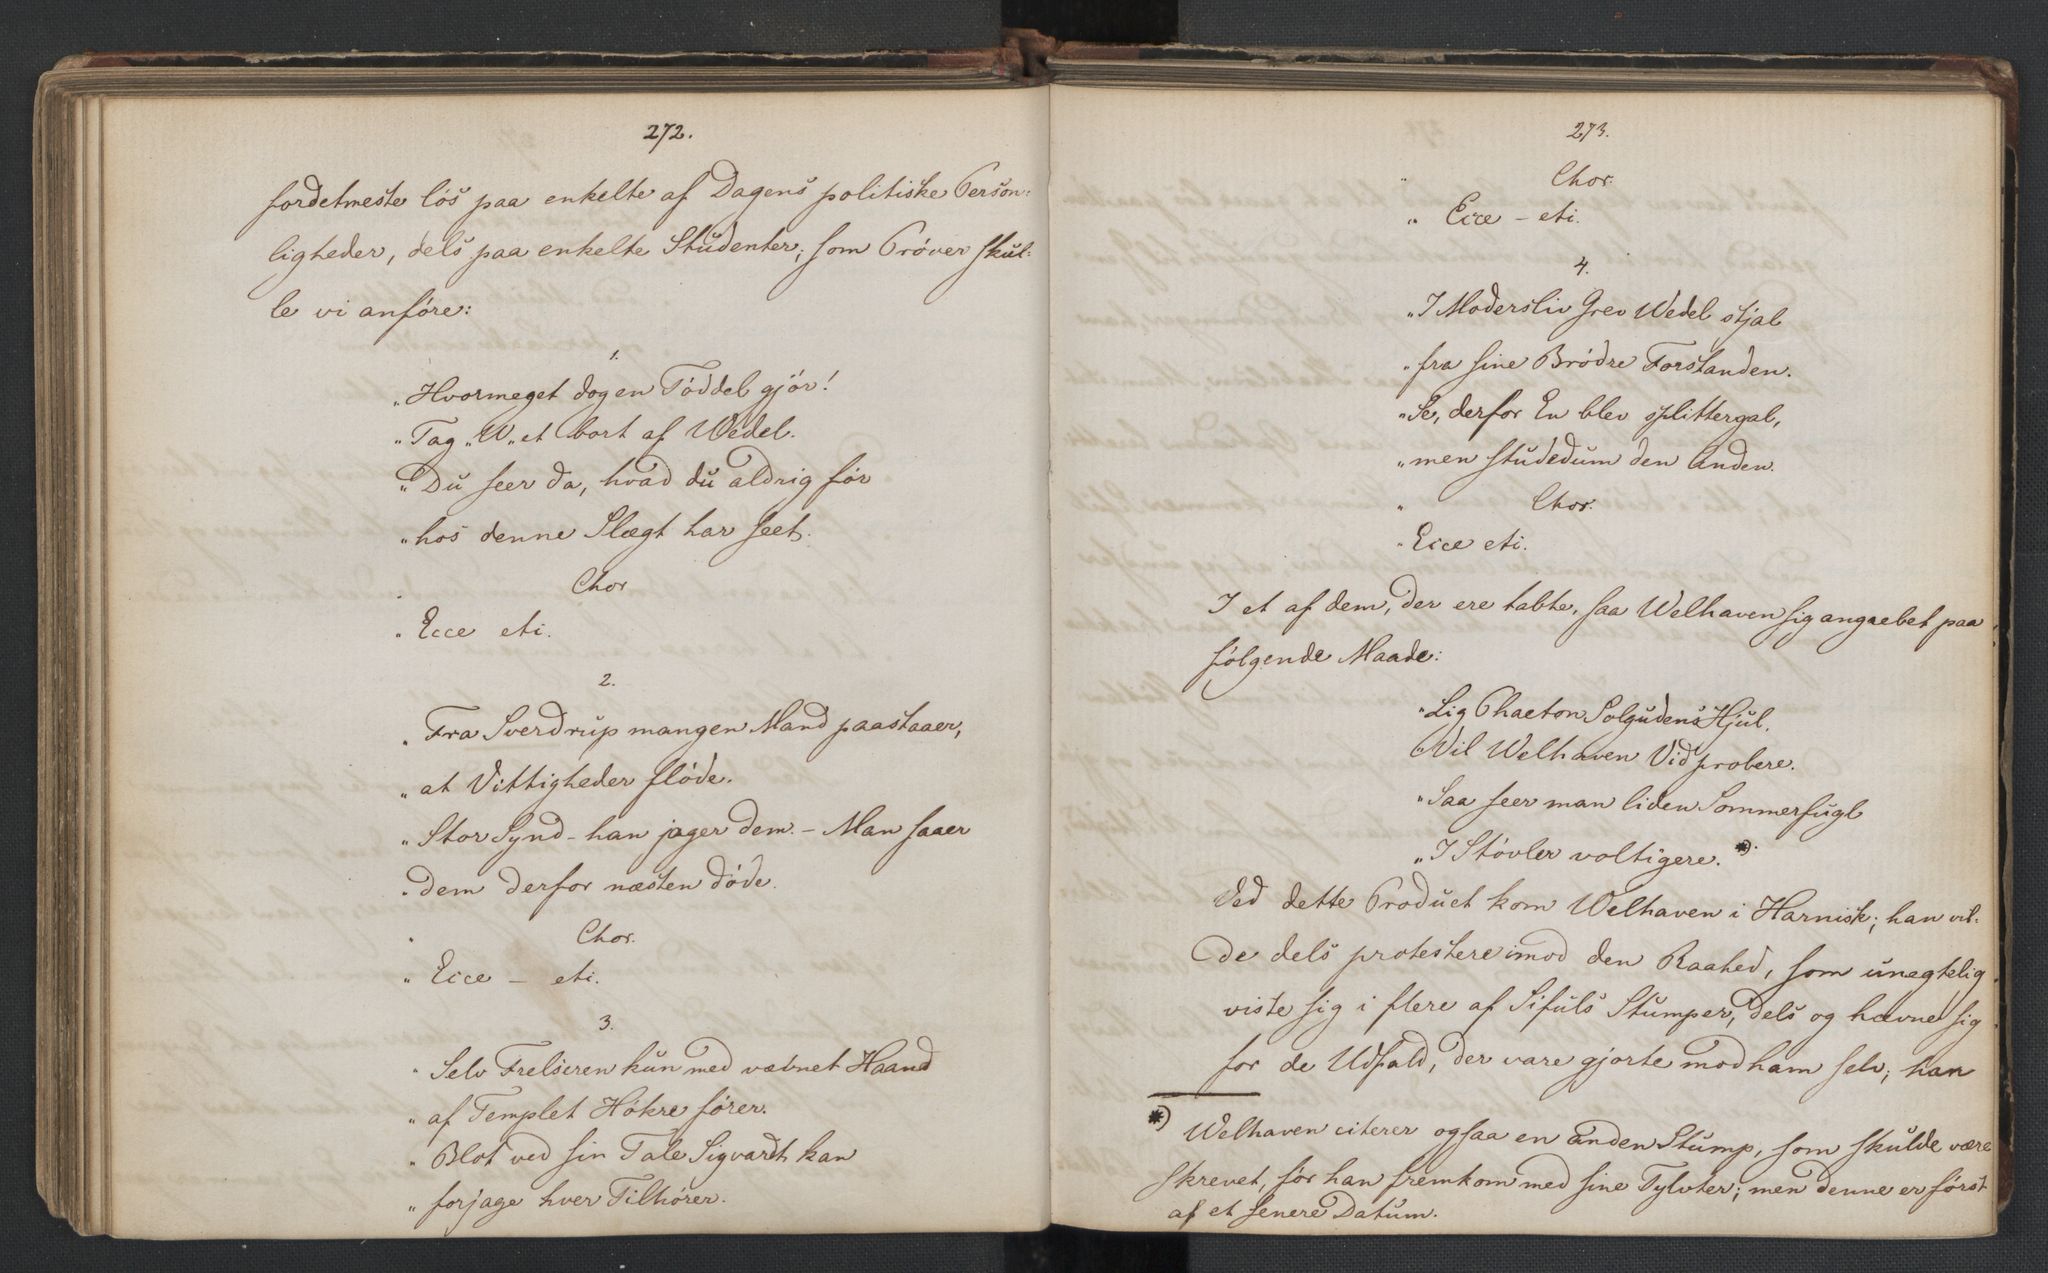 272.
fordetmeste lös paa enkelte af Dagens politiske Person-
ligheder, dels paa enkelte Studenter; som Prøver skul-
le vi anföre:
1.
„Hvormeget dog en Töddel gjör!
„Tag „W„et bort af Wedel.
„Du seer da, hvad du aldrig før
„hos denne Slægt har seet.
„ Chor
„Ecce etc.
2.
„Fra Sverdrup mangen Mand paastaaer,
„at Vittigheder fløde.
„Stor Synd - han jager dem. - Man faaer
„dem derfor næsten døde.
„ Chor.
„Ecce - etc.
3.
„Selv Frelseren kun med væbnet Haand
„af Templet Høkre fører.
„Blot ved sin Tale Sigvardt kan
„forjage hver Tilhører.
273.
„ Chor.
„Ecce - etc.
4.
„I Modersliv Grev Wedel stjal
„fra sine Brödre Forstanden.
„Se, derfor En blev splittergal,
„men studedum den Anden.
„ Chor.
„Ecce etc.
I et af dem, der ere tabte, saa Welhaven sig angrebet paa
følgende Maade:
„Lig Phaeton Solgudens Hjul,
„Vil Welhaven Vid probere.
„Saa seer man liden Sommerfugl
„I Støvler voltigere. *).
Ved dette Product kom Welhaven i Harnisk; han vil-
de dels protestere imod den Raahed, som unegtelig
viste sig i flere af Sifuls Stumper, dels og hævne sig
for de Udfald, der vare gjorte mod ham selv; han
*) Welhaven citerer ogsaa en anden Stump, som skulde være
skrevet, før han fremkom med sine Tylvter; men denne er først
af et senere Datum.